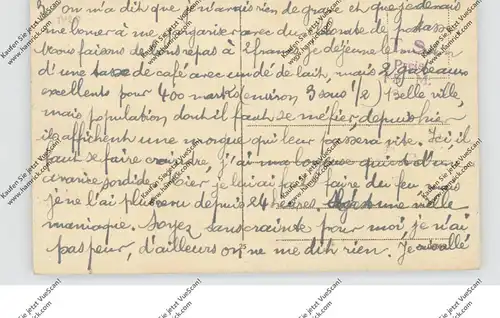 3 on m'a dit que je n'avais rien de grave et que je devais
me borner à me gargariser avec du chlorate de potasse
Nous faisons de bons repas à 2 francs. Je déjeune le matin
d'une tasse de café avec un dé de lait, mais 2 gateaux
excellents pour 400 marks (environ 3 sous 1/2) Belle ville,
mais population dont il faut se méfier, depuis hier
ils affichent une morgue qui leur passera vite. Ici il
faut se faire craindre, j'ai ma logeuse qui est d'une
avarice sordide. Hier, je lui ai fait faire du feu, mais
je ne l'ai plus vu depuis 24 heures. C'est une vieille
maniaque. Soyez sans crainte pour moi, je n'ai
pas peur, d'ailleurs on ne me dit rien. Je suis allé